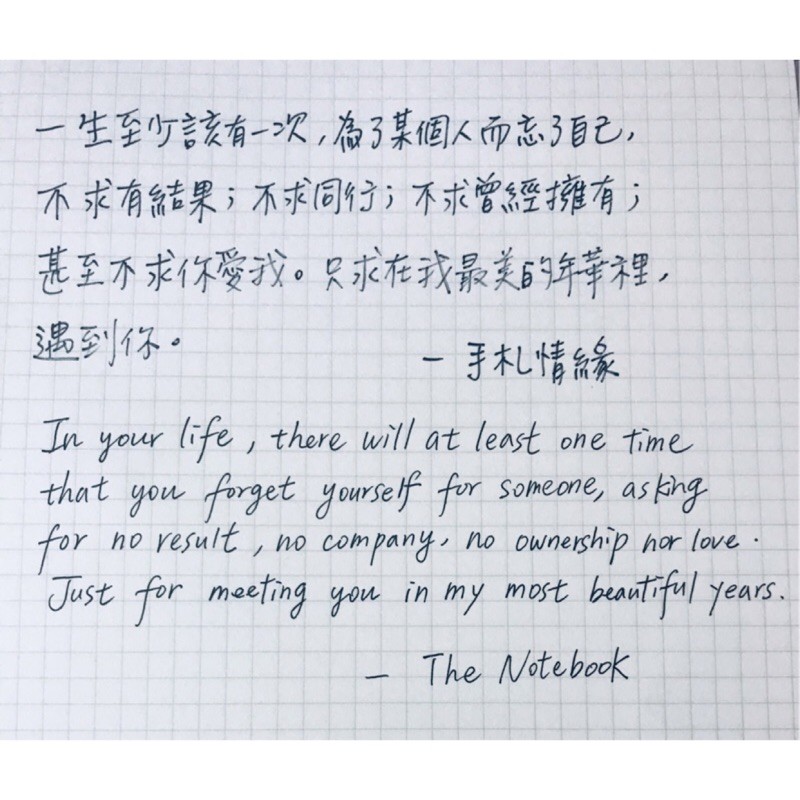 一生至少該有一次,為了某個人而忘了自己,
不求有結果;不求同行;不求曾經擁有;
甚至不求你愛我。只求在我最美的年華裡,
遇到你。
— 手札情緣
In your life, there will at least one time
that you forget yourself for someone, asking
for no result, no company, no ownership nor love.
Just for meeting you in my most beautiful years.
— The Notebook